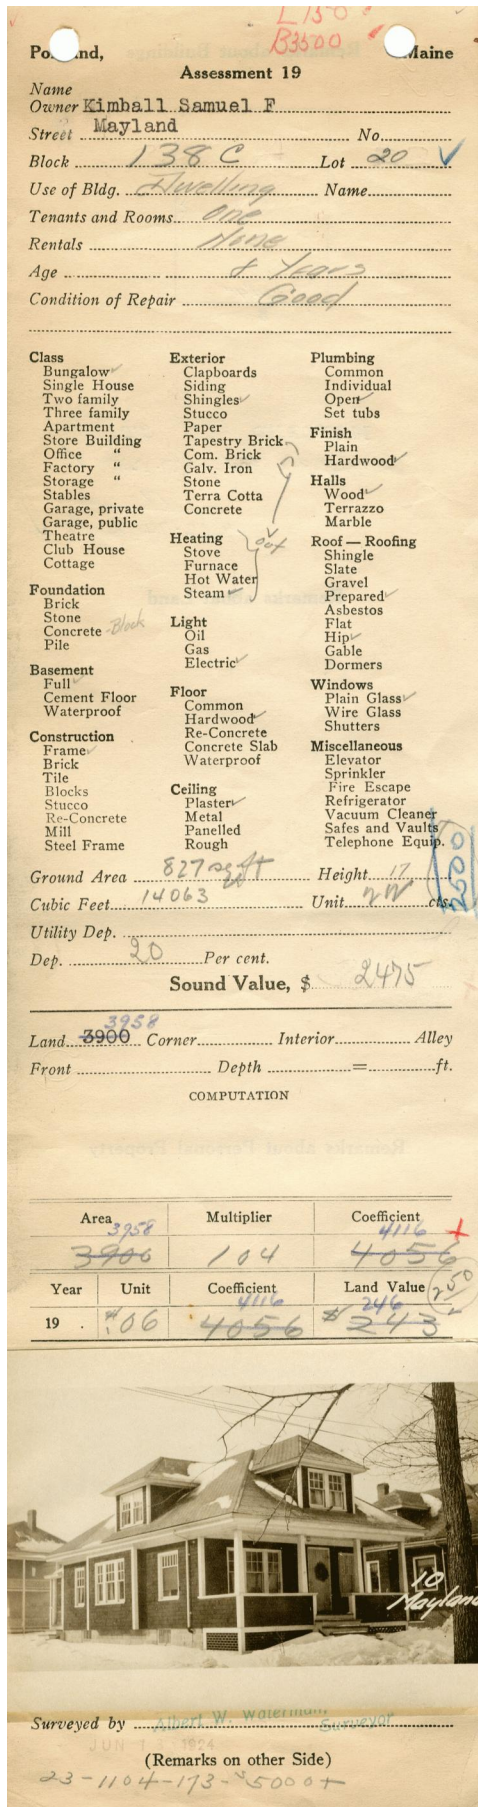 L 150
B3500
Portland, Maine
Assessment 19
Name
Owner Kimball Samuel F
Street Mayland No.
Block 138 C Lot 20
Use of Bldg. Dwelling Name
Tenants and Rooms One
Rentals None
Age 8 Years
Condition of Repair Good
Class
Bungalow
Single House
Two family
Three family
Apartment
Store Building
Office "
Factory "
Storage "
Stables
Garage, private
Garage, public
Theatre
Club House
Cottage
Foundation
Brick
Stone
Concrete -Block
Pile
Basement
Full
Cement Floor
Waterproof
Construction
Frame
Brick
Tile
Blocks
Stucco
Re-Concrete
Mill
Steel Frame
Exterior
Clapboards
Siding
Shingles
Stucco
Paper
Tapestry Brick
Com. Brick
Galv. Iron
Stone
Terra Cotta
Concrete
Heating
Stove
Furnace
Hot Water
Steam
Light
Oil
Gas
Electric
Floor
Common
Hardwood
Re-Concrete
Concrete Slab
Waterproof
Ceiling
Plaster
Metal
Panelled
Rough
Plumbing
Common
Individual
Open
Set tubs
Finish
Plain
Hardwood
Halls
Wood
Terrazzo
Marble
Roof — Roofing
Shingle
Slate
Gravel
Prepared
Asbestos
Flat
Hip
Gable
Dormers
Windows
Plain Glass
Wire Glass
Shutters
Miscellaneous
Elevator
Sprinkler
Fire Escape
Refrigerator
Vacuum Cleaner
Safes and Vaults
Telephone Equip.
2500
Ground Area 827 sq ft Height 17
Cubic Feet 14063 Unit 22 cts.
Utility Dep.
Dep. 20 Per cent.
Sound Value, $ 2475
3958
Land 3900 Corner Interior Alley
Front Depth = ft.
COMPUTATION
Area Multiplier Coefficient
3958 4116
3900 104 4056
Year Unit Coefficient Land Value 250
4116 246
19 . $.06 4056 $243
10
Mayland
Surveyed by Albert W. Waterman, Surveyor
JUN 13 1924
(Remarks on other Side)
23-1104-173- 5000+